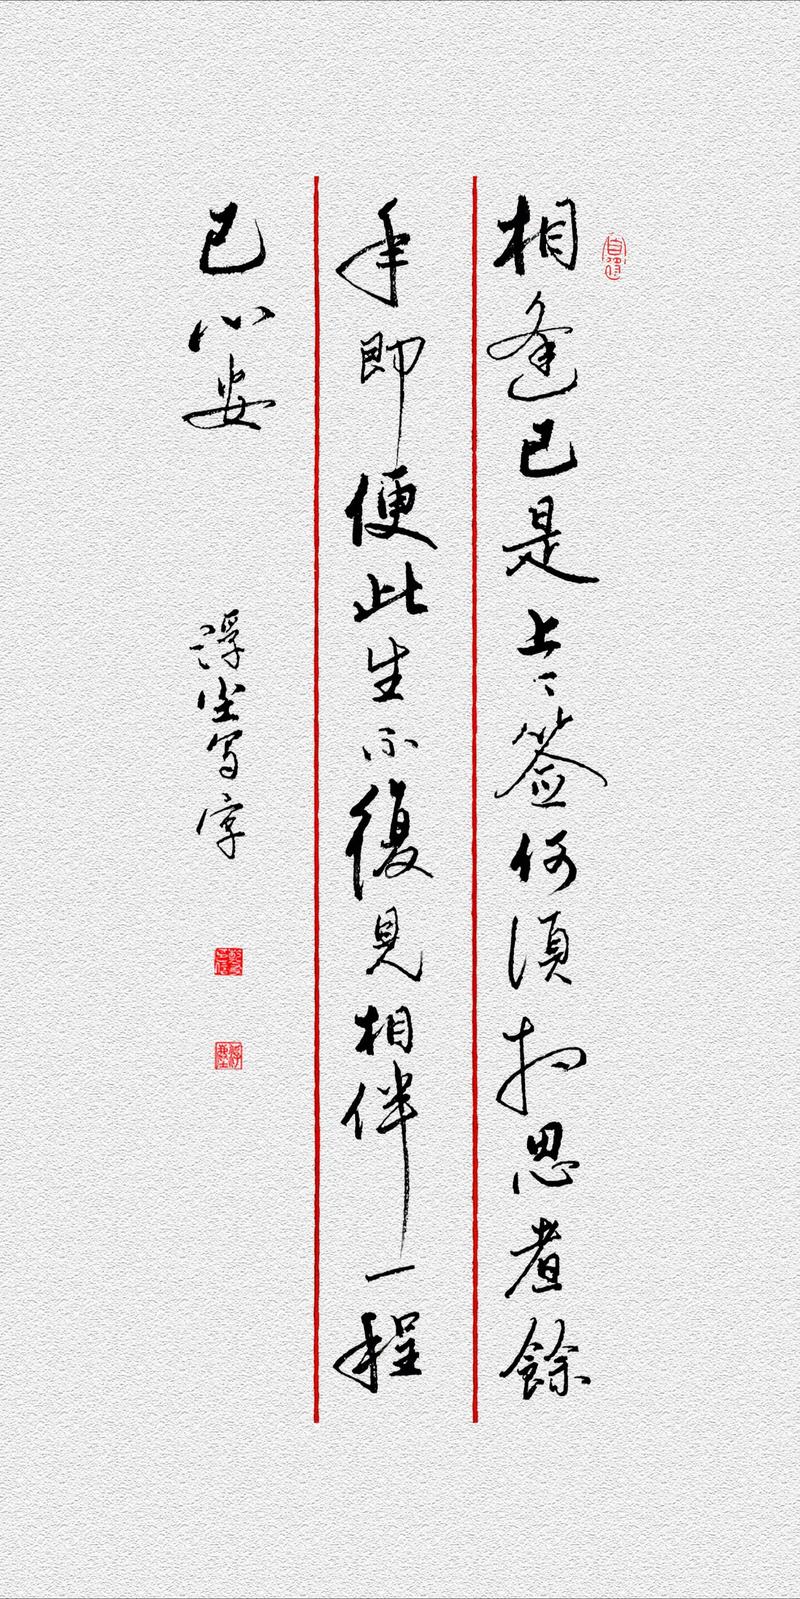 相逢已是上〻签何須相思煮餘
年即便此生不復見相伴一程
已心安
浮尘写字